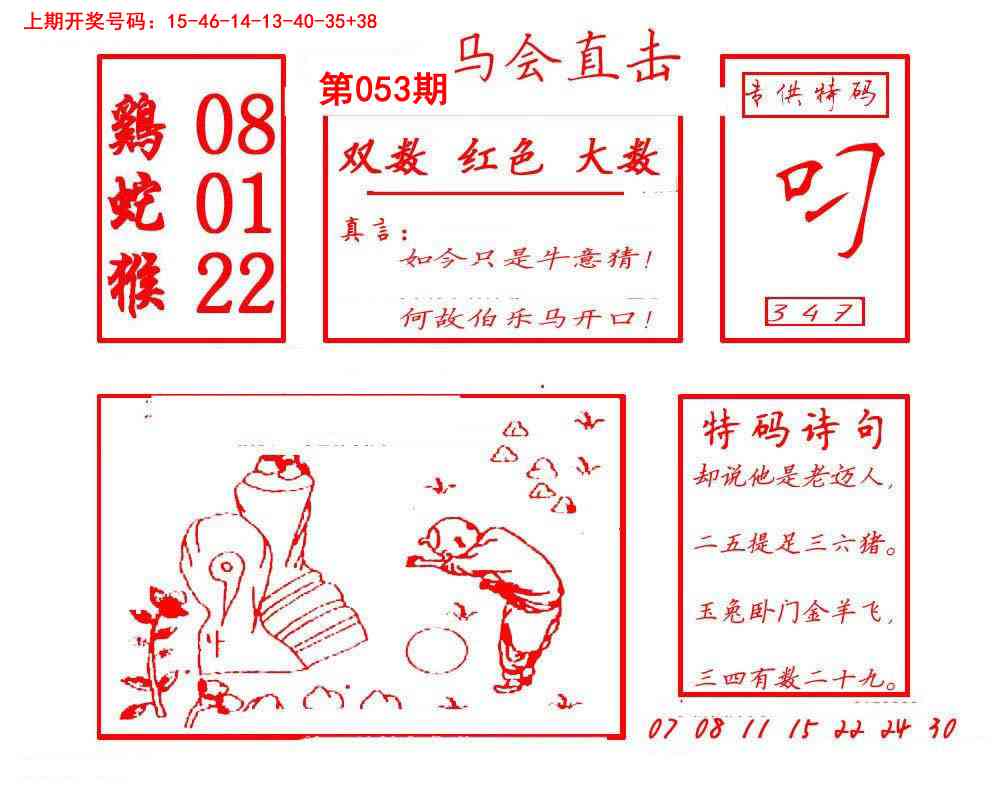 上期开奖号码：15-46-14-13-40-35+38
马会直击
第053期
鷄 08
蛇 01
猴 22
双数 红色 大数
真言：
如今只是牛意猜！
何故伯乐马开口！
专供特码
叼
347
特码诗句
却说他是老迈人，
二五提足三六猪。
玉兔卧门金羊飞，
三四有数二十九。
07 08 11 15 22 24 30